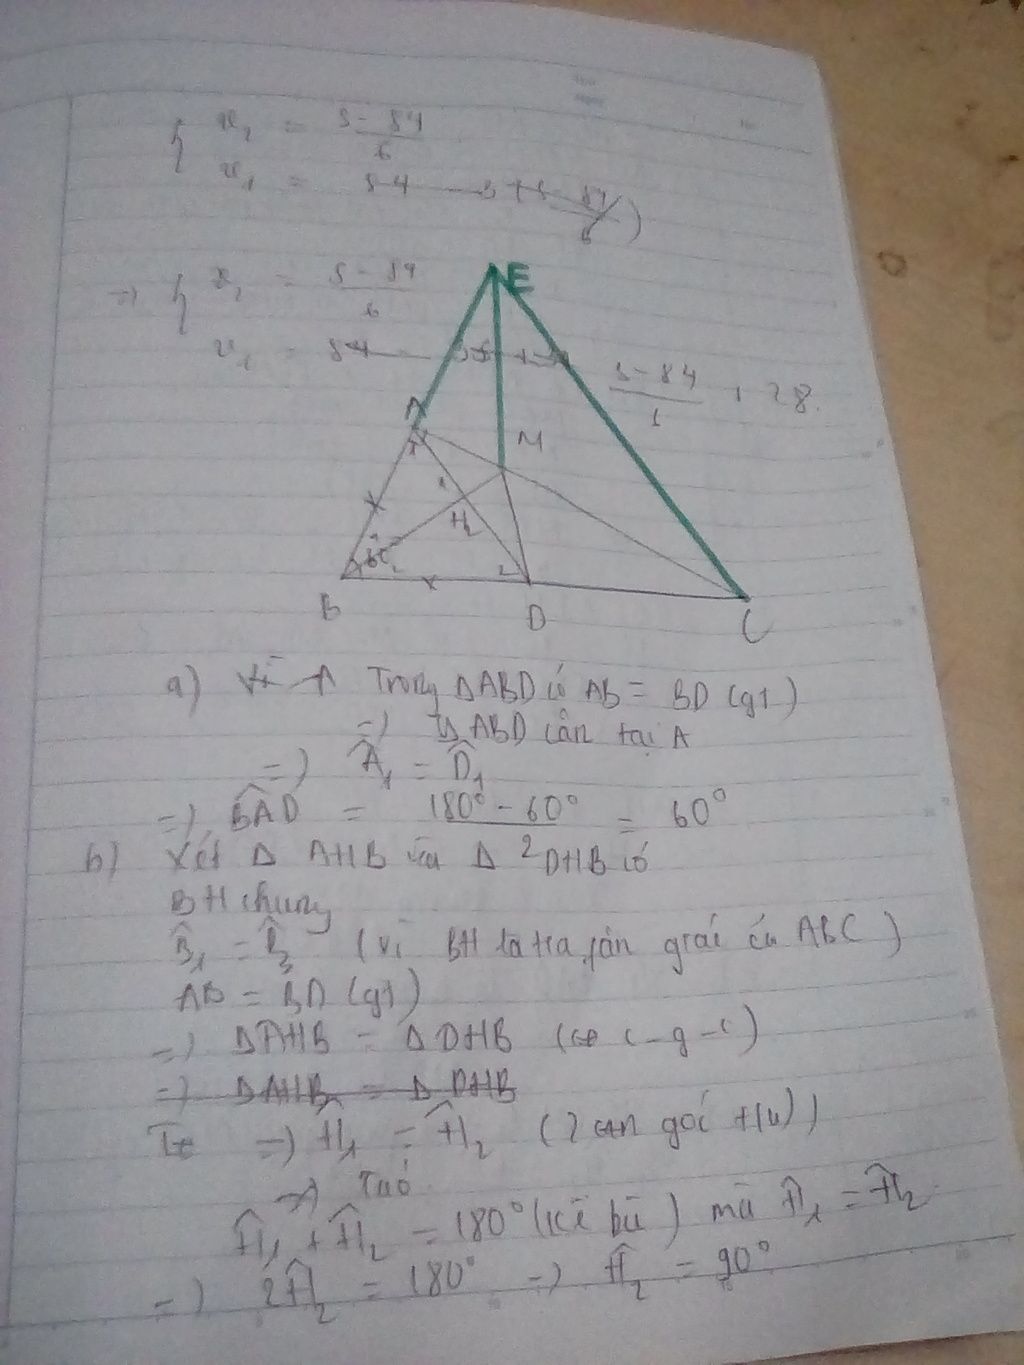 { v₂ = S - 84 / 6
v₁ = 84
⇒ { v₂ = S - 84 / 6
v₁ = 84 S - 84 / 6 + 28.
E
A
M
1
H₂
2
B
D
C
a) Vì A Trong ΔABD có AB = BD (gt)
⇒ ΔABD cân tại A
⇒ Â₁ = D̂₁
⇒ BAD̂ = 180° - 60° / 2 = 60°
b) Xét Δ AHB và Δ DHB có
BH chung
B̂₁ = B̂₂ (vì BH là tia phân giác củ ABC)
AB = BD (gt)
⇒ ΔAHB = ΔDHB (c-g-c)
⇒ ΔAHB = Δ DHB
⇒ Ĥ₁ = Ĥ₂ (2 góc tứ)
⇒
Ĥ₁ + Ĥ₂ = 180° (kề bù) mà Ĥ₁ = Ĥ₂
⇒ 2Ĥ₂ = 180° ⇒ Ĥ₂ = 90°